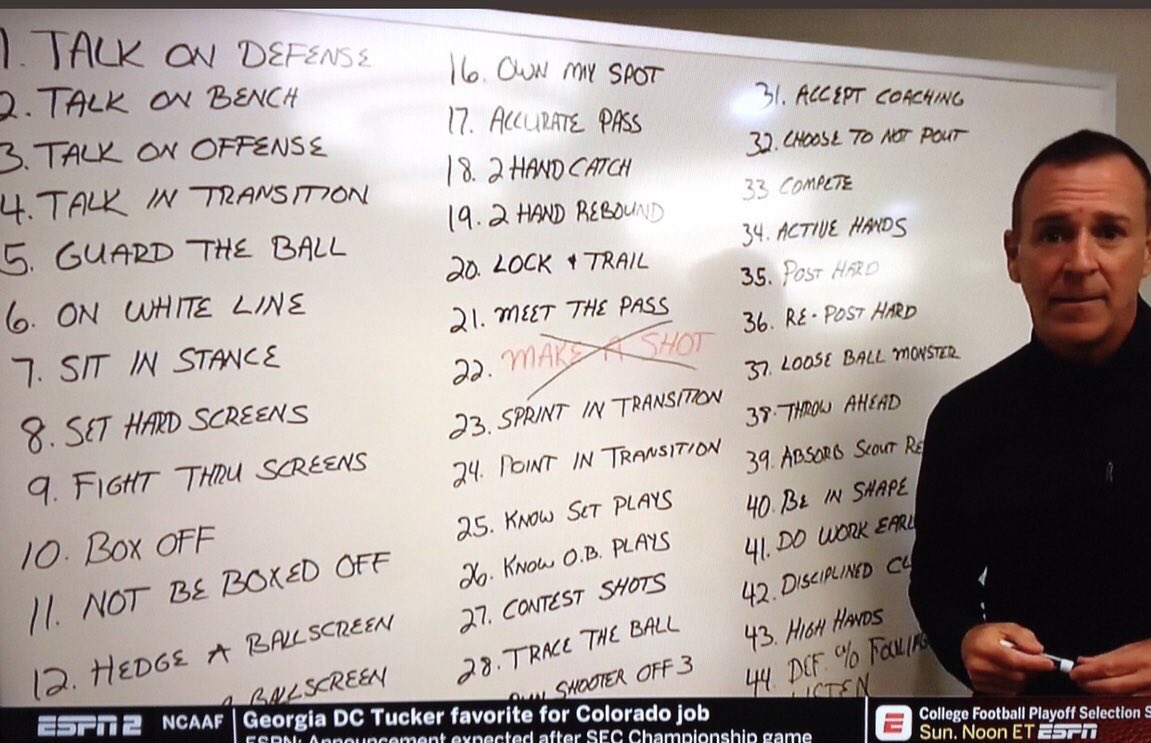 1. TALK ON DEFENSE
2. TALK ON BENCH
3. TALK ON OFFENSE
4. TALK IN TRANSITION
5. GUARD THE BALL
6. ON WHITE LINE
7. SIT IN STANCE
8. SET HARD SCREENS
9. FIGHT THRU SCREENS
10. BOX OFF
11. NOT BE BOXED OFF
12. HEDGE A BALLSCREEN
A BALLSCREEN
16. OWN MY SPOT
17. ACCURATE PASS
18. 2 HAND CATCH
19. 2 HAND REBOUND
20. LOCK & TRAIL
21. MEET THE PASS
22. MAKE A SHOT
23. SPRINT IN TRANSITION
24. POINT IN TRANSITION
25. KNOW SET PLAYS
26. KNOW O.B. PLAYS
27. CONTEST SHOTS
28. TRACE THE BALL
SHOOTER OFF 3
31. ACCEPT COACHING
32. CHOOSE TO NOT POUT
33 COMPETE
34. ACTIVE HANDS
35. POST HARD
36. RE-POST HARD
37. LOOSE BALL MONSTER
38. THROW AHEAD
39. ABSORB SCOUT RE
40. BE IN SHAPE
41. DO WORK EARL
42. DISCIPLINED CL
43. HIGH HANDS
44. DEF. W/O FOULING
LISTEN
ESPN2 NCAAF Georgia DC Tucker favorite for Colorado job
ESPN: Announcement expected after SEC Championship game
E College Football Playoff Selection S
Sun. Noon ET ESPN